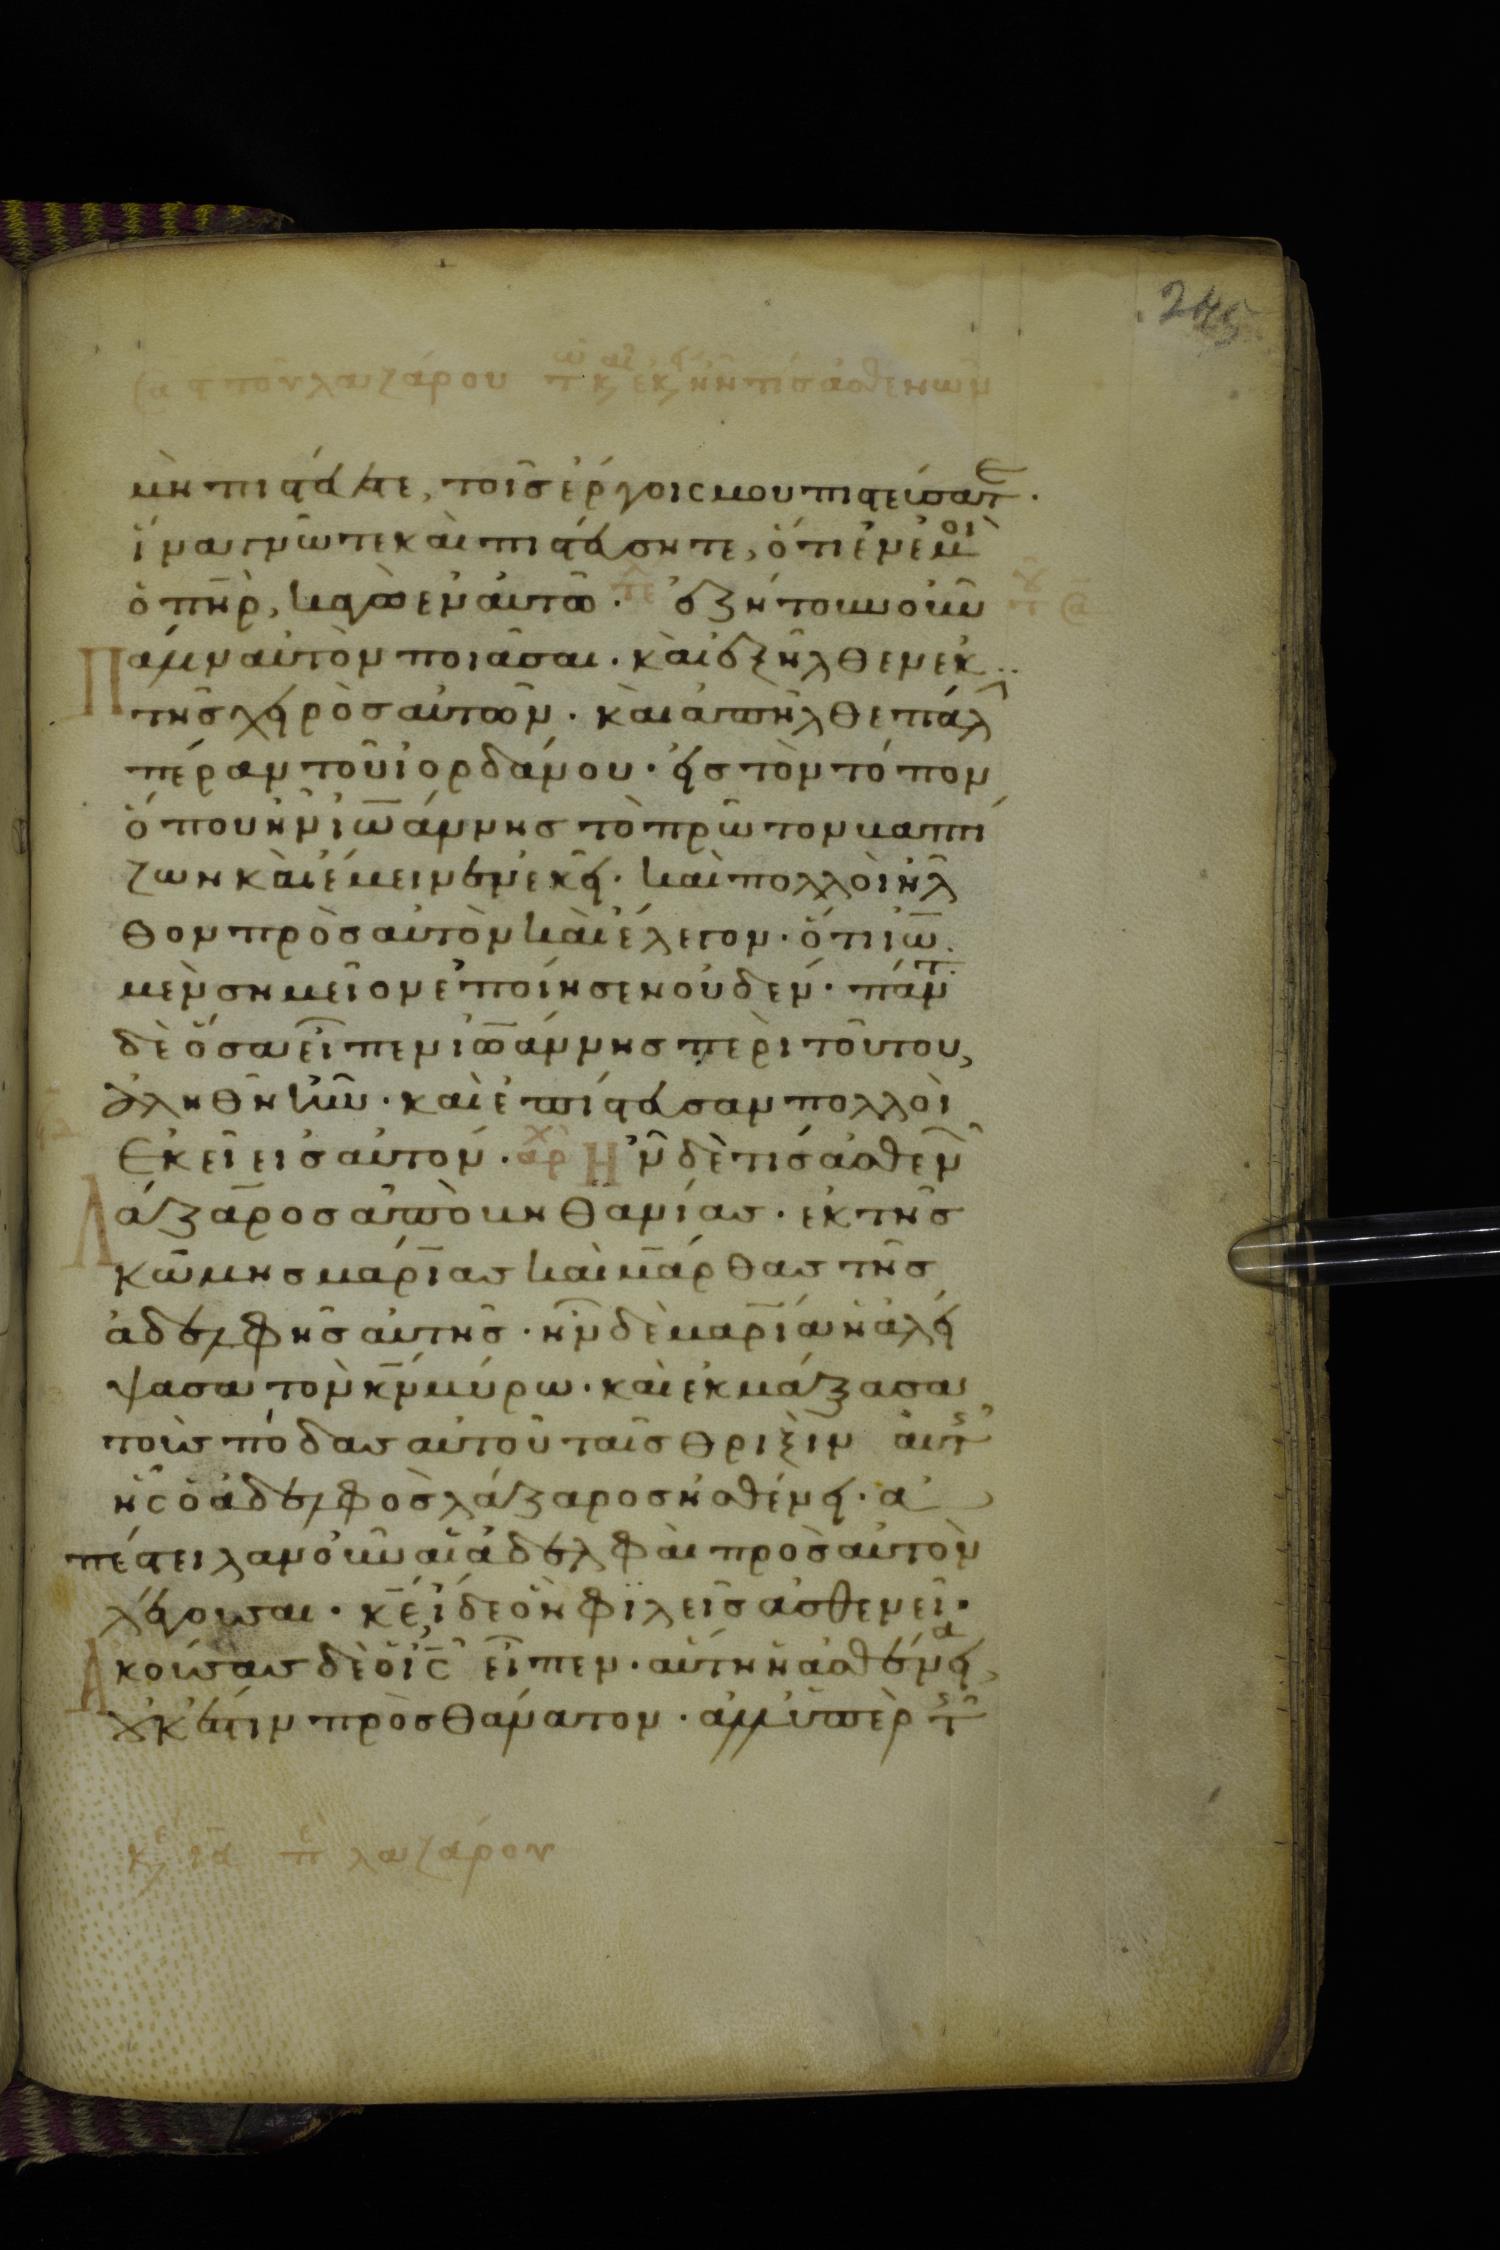 245
μὴ πιστεύητε, τοῖς ἔργοις μου πιστεύσατε.
ἵνα γνῶτε καὶ πιστεύσητε, ὅτι ἐν ἐμοὶ
ὁ πηρ, κἀγὼ ἐν αὐτῶ. τε ἐζήτουν οὖν
πάλιν αὐτὸν πιάσαι. καὶ ἐξῆλθεν ἐκ
τῆς χειρὸς αὐτῶν. καὶ ἀπῆλθε πάλ
πέραν τοῦ ἰορδάνου. εἰς τὸν τόπον
ὅπου ἦν ἰωάννης τὸ πρῶτον βαπτί
ζων καὶ ἔμεινεν ἐκεῖ. καὶ πολλοὶ ἦλ
θον πρὸς αὐτὸν καὶ ἔλεγον. ὅτι ἰω
μὲν σημεῖον ἐποίησεν οὐδέν. πάντ
δὲ ὅσα εἶπεν ἰωάννης περὶ τούτου,
ἀληθῆ ἦν. καὶ ἐπίστευσαν πολλοὶ
ἐκεῖ εἰς αὐτόν. αρχ Ἦν δέ τις ἀσθενῶν
λάζαρος ἀπὸ βηθανίας. ἐκ τῆς
κώμης μαρίας καὶ μάρθας τῆς
ἀδελφῆς αὐτῆς. ἦν δὲ μαρία ἡ ἀλεί
ψασα τὸν κν μύρω. καὶ ἐκμάξασα
τοὺς πόδας αὐτοῦ ταῖς θριξὶν αὐτ
ἧς ὁ ἀδελφὸς λάζαρος ἠσθένει. ἀ
πέστειλαν οὖν αἱ ἀδελφαὶ πρὸς αὐτὸν
λέγουσαι. κε ἴδε ὃν φιλεῖς ἀσθενεῖ.
ἀκούσας δὲ ὁ ις εἶπεν. αὕτη ἡ ἀσθένεια
οὐκ ἔστιν πρὸς θάνατον. ἀλλ' ὑπὲρ τ
κε ια π λαζάρου